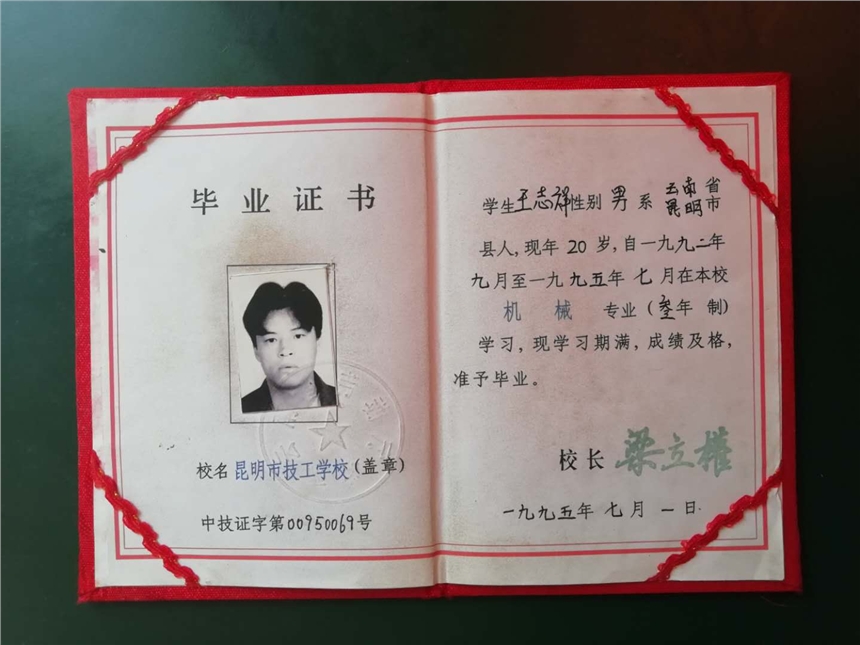 毕业证书
校名昆明市技工学校(盖章)
中技证字第00950069号
学生王志祥性别男系云南省昆明市
县人,现年20岁,自一九九二年
九月至一九九五年七月在本校
机械专业(叁年制)
学习,现学习期满,成绩及格,
准予毕业。
校长梁立權
一九九五年七月一日